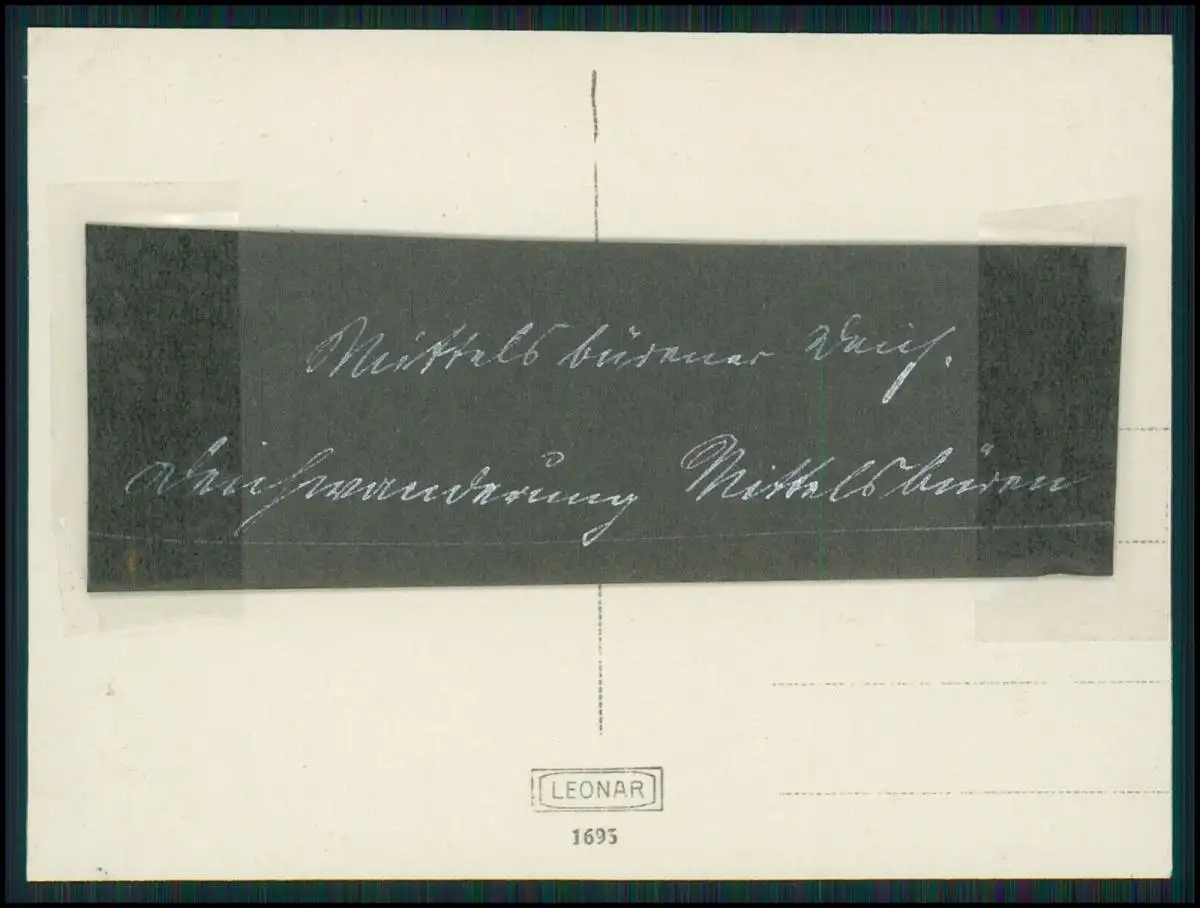 Mittelsbürener Deich.
Deichwanderung Mittelsbüren
LEONAR
1693